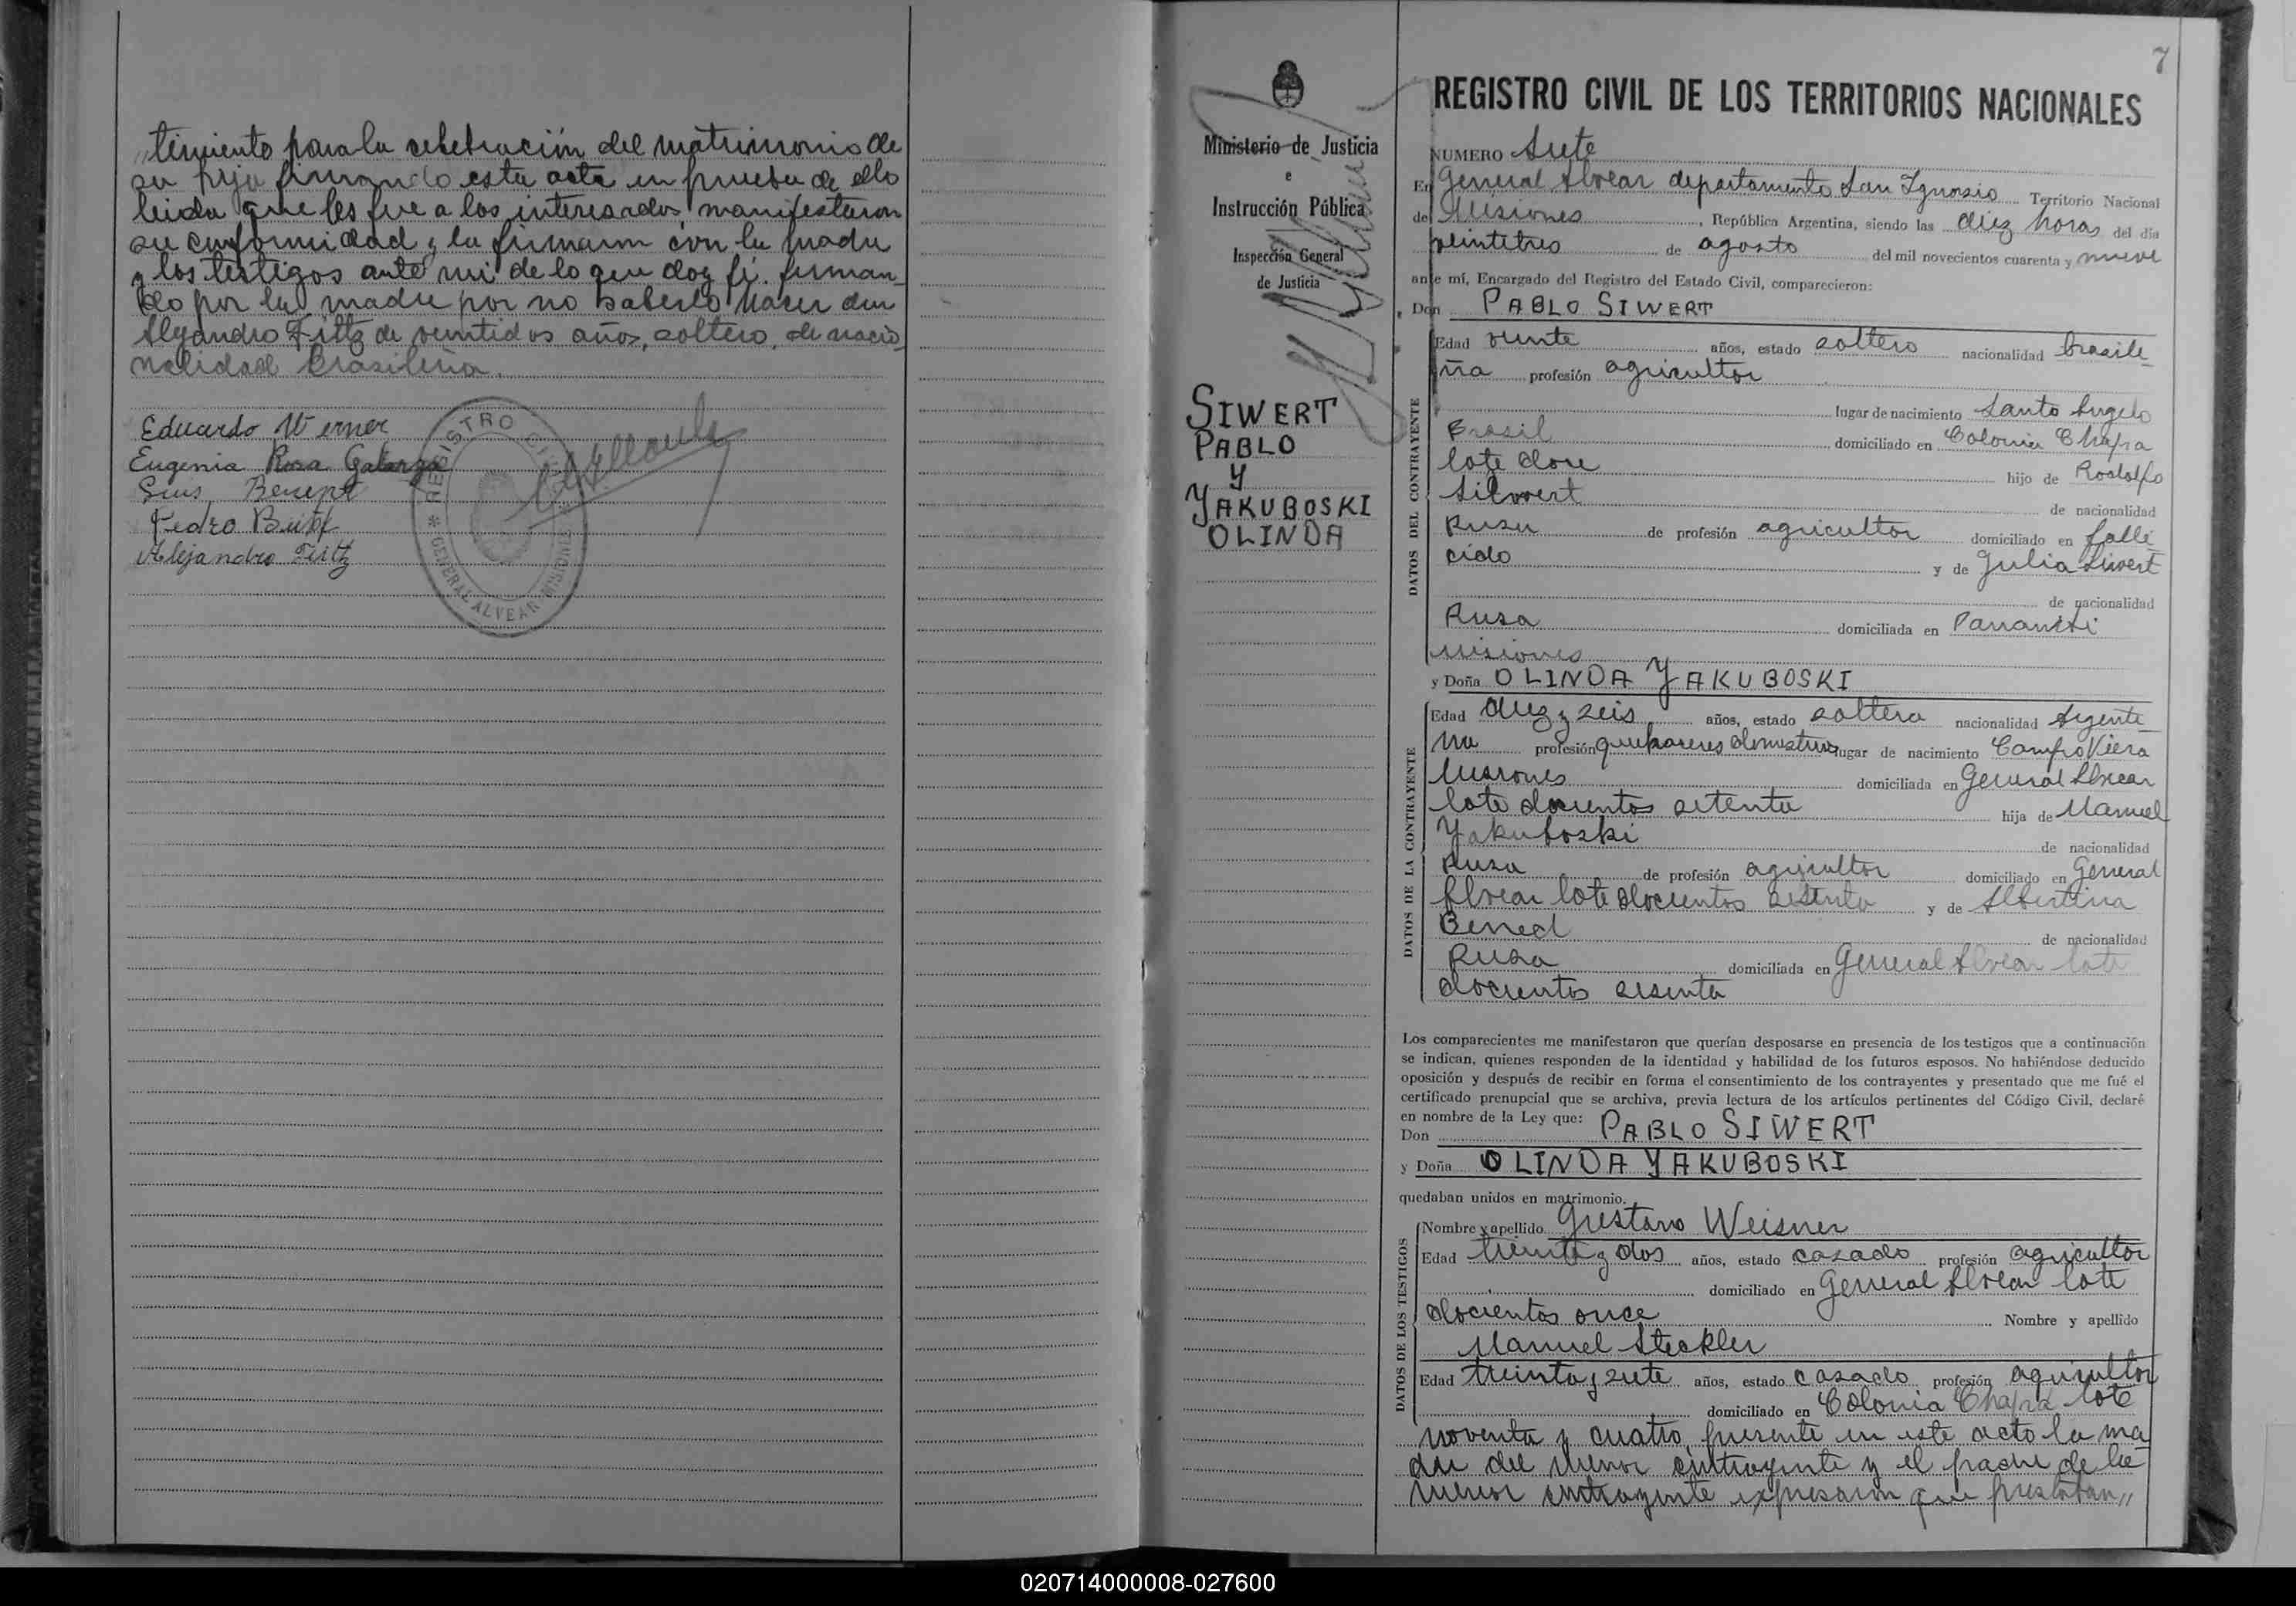 „timiento para la celebración del matrimonio de
su hija firmando esta acta en prueba de ello
leida que les fue a los interesados manifestaron
su conformidad y la firmaron con la madre
y los testigos ante mi de lo que doy fé. firman_
do por la madre por no saberlo hacer don
Alejandro Fitz de veintidos años, soltero, de nacio_
nalidad Brasileña.
Eduardo Werner
Eugenia Rosa
Luis
Pedro
Alejandro
REGISTRO CIVIL
GENERAL ALVEAR MISIONES
Ministerio de Justicia
e
Instrucción Pública
Inspección General
de Justicia
SIWERT
PABLO
Y
YAKUBOSKI
OLINDA
7
REGISTRO CIVIL DE LOS TERRITORIOS NACIONALES
NUMERO Siete
En General Alvear departamento San Ignacio Territorio Nacional
de Misiones, República Argentina, siendo las diez horas del día
veintitres de agosto del mil novecientos cuarenta y nueve
ante mí, Encargado del Registro del Estado Civil, comparecieron:
Don PABLO SIWERT
DATOS DEL CONTRAYENTE
Edad veinte años, estado soltero nacionalidad brasile_
ña profesión agricultor
lugar de nacimiento Santo Angelo
Brasil domiciliado en Colonia Chapa
lote doce hijo de Rodolfo
Siewert de nacionalidad
Rusa de profesión agricultor domiciliado en falle_
cido y de Julia Siwert
de nacionalidad
Rusa domiciliada en
Misiones
y Doña OLINDA YAKUBOSKI
DATOS DE LA CONTRAYENTE
Edad diez y seis años, estado soltera nacionalidad Argenti_
na profesión quehaceres domesticos lugar de nacimiento Campo Viera
Misiones domiciliada en General Alvear
lote docientos setenta hija de Manuel
Yakuboski de nacionalidad
Rusa de profesión agricultor domiciliado en General
Alvear lote docientos setenta y de Albertina
Bened de nacionalidad
Rusa domiciliada en General Alvear lote
docientos sesenta
Los comparecientes me manifestaron que querían desposarse en presencia de los testigos que a continuación
se indican, quienes responden de la identidad y habilidad de los futuros esposos. No habiéndose deducido
oposición y después de recibir en forma el consentimiento de los contrayentes y presentado que me fué el
certificado prenupcial que se archiva, previa lectura de los artículos pertinentes del Código Civil, declaré
en nombre de la Ley que:
Don PABLO SIWERT
y Doña OLINDA YAKUBOSKI
quedaban unidos en matrimonio.
DATOS DE LOS TESTIGOS
Nombre y apellido Gustavo Weisner
Edad treinta y dos años, estado casado profesión agricultor
domiciliado en General Alvear lote
docientos once Nombre y apellido
Manuel Steckler
Edad treinta y siete años, estado casado profesión agricultor
domiciliado en Colonia Chapa lote
noventa y cuatro, presente en este acto la ma_
dre del menor contrayente y el padre de la
menor contrayente expresaron que prestaban„
020714000008-027600